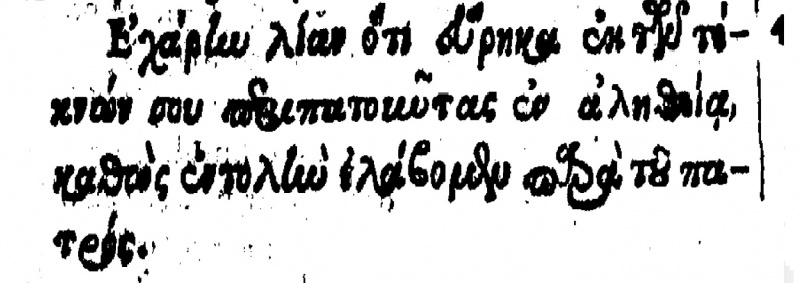 Ἐχάρην λίαν ὅτι εὕρηκα ἐκ τῶν τέ- 4
κνων σου περιπατοῦντας ἐν ἀληθείᾳ,
καθὼς ἐντολὴν ἐλάβομεν παρὰ τοῦ πα-
τρός.